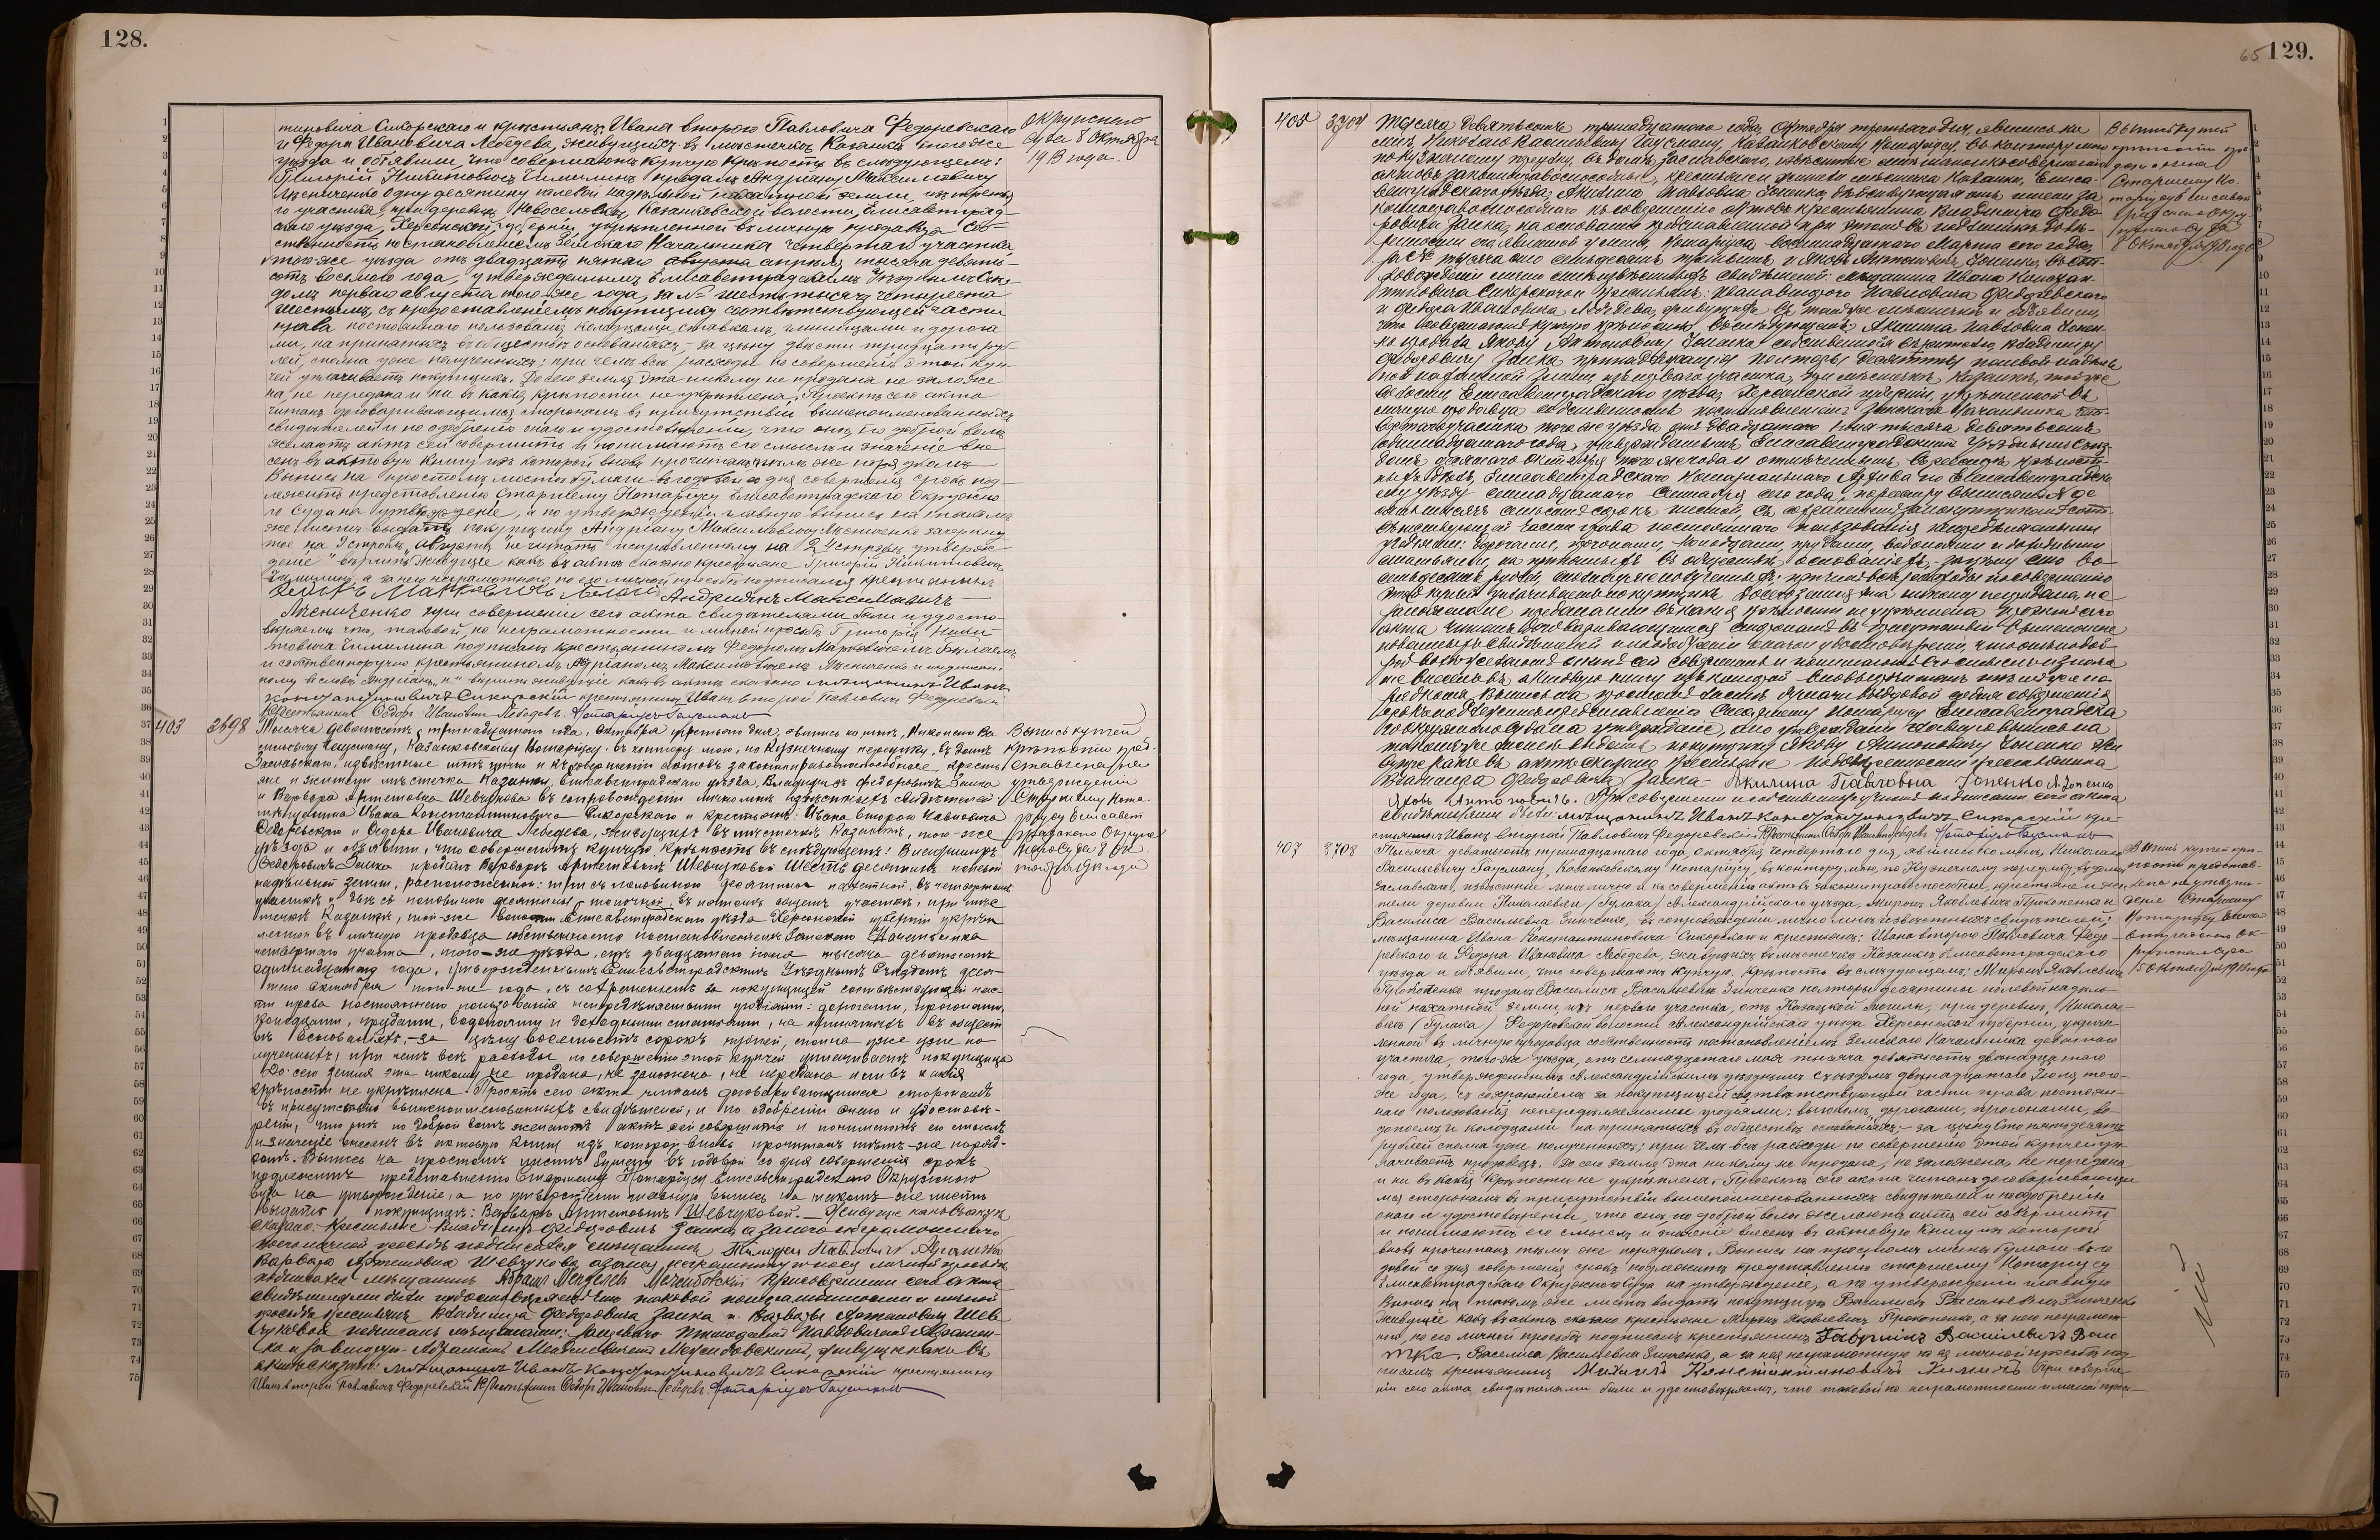 128.
тиновича Сикорскаго и крестьянъ: Ивана второго Павловича Федоревскаго
и Федора Ивановича Лебедева, живущихъ въ мѣстечкѣ Казанкѣ того-же
уѣзда и объявили, что совершаютъ купчую крѣпость въ слѣдующемъ:
Григорій Никитовичъ Чимилинъ продалъ Андріану Максимовичу
одну десятину полевой надѣльной пахатной земли, изъ
го участка, при деревнѣ Новоселовкѣ, Казанковской волости, Елисаветград-
скаго уѣзда, Херсонской губерніи, укрѣпленной въ личную продавца соб-
ственность постановленіемъ Земскаго Начальника четвертаго участка,
того-же уѣзда отъ двадцать пятаго августа апрѣля тысяча девять-
сотъ восьмого года, утвержденнымъ Елисаветградскимъ Уѣзднымъ Съѣз-
домъ перваго августа того-же года, за № шесть тысячъ четыреста
шестымъ, съ предоставленіемъ покупщику соотвѣтствующей части
права постояннаго пользованія колодцами, ставками, и дорога-
ми, на принятыхъ въ обществѣ основаніяхъ, за цѣну двѣсти тридцать руб-
лей, сполна уже полученныхъ; при чемъ всѣ расходы по совершенію этой куп-
чей уплачиваетъ покупщикъ. До сего земля эта никому не продана не заложе-
на, не передана и ни въ какія крѣпости не укрѣплена. Проектъ сего акта
читанъ договаривающимся сторонамъ въ присутствіи вышепоименованныхъ
свидѣтелей и по одобреніи онаго и удостовѣреніи, что они по доброй волѣ
желаютъ актъ сей совершить и понимаютъ его смыслъ и значеніе вне-
сенъ въ актовую книгу изъ которой вновь прочитанъ тѣмъ же порядкомъ
Выпись на простомъ листѣ бумаги въ годовой со дня совершенія срокъ под-
лежитъ представленію Старшему Нотаріусу Елисаветградскаго Окружно-
го Суда на утвержденіе, а по утвержденіи главную выпись на такомъ
же листѣ выдать покупщику Андріану Максимовичу зачеркну-
тое на 9 строкѣ „августа" не читать исправленному на 24 строкѣ „утверж-
деніе" вѣрить. Живущіе какъ въ актѣ сказано крестьяне Григорій Никитовичъ
Чимилинъ, а за него неграмотнаго, по его личной просьбѣ подписался крестьянинъ
Андріянъ Максимовичъ
при совершеніи сего акта свидѣтелями были и удосто-
вѣряемъ что, таковой, по неграмотности и личной просьбѣ Григорія Ники-
товича Чимилина подписанъ крестьяниномъ Федоромъ Марковичемъ Бѣлаемъ
и собственноручно крестьяниномъ Андріаномъ Максимовичемъ
вѣрить живущіе какъ въ актѣ сказано мѣщанинъ Иванъ
Константиновичъ Сикорскій крестьянинъ Иванъ второй Павловичъ Федоревскій
Крестьянинъ Федоръ Ивановичъ Лебедевъ. Нотаріусъ Гаусманъ
Окружного
Суда 8 Октября
1913 года.
403 3698 Тысяча девятьсотъ тринадцатаго года, Октября третьяго дня, явились ко мнѣ, Николаю Ва-
сильевичу Гаусману, Казанковскому Нотаріусу, въ контору мою, по Кузнечному переулку, въ домѣ
Заславскаго, извѣстные мнѣ лично и къ совершенію актовъ законно правоспособные, кресть-
яне и жители мѣстечка Казанки, Елисаветградскаго уѣзда, Владимиръ Федоровичъ Заика
и Варвара Артемовна Шевчукова въ сопровожденіи лично мнѣ извѣстныхъ свидѣтелей
мѣщанина Ивана Константиновича Сикорскаго и крестьянъ: Ивана второго Павловича
Федоревскаго и Федора Ивановича Лебедева, живущихъ въ мѣстечкѣ Казанкѣ, того-же
уѣзда и объявили, что совершаютъ купчую крѣпость въ слѣдующемъ: Владимиръ
Федоровичъ Заика продалъ Варварѣ Артемовнѣ Шевчуковой шесть десятинъ полевой
надѣльной земли, расположенныхъ: три съ половиною десятины пахатной, въ четвертомъ
участкѣ и двѣ съ половиною десятины въ участкѣ, при мѣс-
течкѣ Казанкѣ, той-же волости Елисаветградскаго уѣзда Херсонской губерніи укрѣп-
ленной въ личную продавца собственность постановленіемъ Земскаго Начальника
четвертаго участка, того-же уѣзда, отъ двадцатаго іюня тысяча девятьсотъ
одиннадцатаго года, утвержденнымъ Елисаветградскимъ Уѣзднымъ Съѣздомъ деся-
таго октября того-же года, съ сохраненіемъ за покупщицей соотвѣтствующей час-
ти права постояннаго пользованія нераздѣльными угодіями: дорогами, прогонами,
колодцами, прудами, водопоями и доходными статьями, на принятыхъ въ общест-
вѣ основаніяхъ,-за цѣну восемьсотъ сорокъ рублей, сполна уже по-
лученныхъ; при чемъ всѣ расходы по совершенію этой купчей уплачиваетъ покупщица
До сего земля эта никому не продана, не заложена, не передана и ни въ какія
крѣпости не укрѣплена. Проектъ сего акта читанъ договаривающимся сторонамъ
въ присутствіи вышепоименованныхъ свидѣтелей, и по одобреніи онаго и удостовѣ-
реніи, что они по доброй волѣ желаютъ актъ сей совершить и понимаютъ его смыслъ
и значеніе внесенъ въ актовую книгу изъ которой вновь прочитанъ тѣмъ-же поряд-
комъ. Выпись на простомъ листѣ бумаги въ годовой со дня совершенія срокъ
подлежитъ представленію Старшему Нотаріусу Елисаветградскаго Окружного
Суда на утвержденіе, а по утвержденіи главную выпись на такомъ же листѣ
выдать покупщицѣ: Варварѣ Артемовнѣ Шевчуковой. Живущіе какъ въ актѣ
сказано: крестьяне Владимиръ Федоровичъ Заика, а за него неграмотнаго
по его личной просьбѣ подписался мѣщанинъ Павловичъ
Варвара Артемовна Шевчукова, а за нея неграмотную по ея личной просьбѣ
подписался мѣщанинъ Абрамъ Менделевъ Межибовскій При совершеніи сего акта
свидѣтелями были и удостовѣряемъ что таковой по неграмотности и личной
просьбѣ крестьянъ Владимира Федоровича Заика и Варвары Артемовны Шев-
чуковой подписанъ мѣщанами: за перваго Павловичемъ
и за вторую- Абрамомъ Менделевичемъ Межибовскимъ, живущіе какъ въ
актѣ сказано: мѣщанинъ Иванъ Константиновичъ Сикорскій крестьянинъ
Иванъ второй Павловичъ Федоревскій Крестьянинъ Федоръ Ивановичъ Лебедевъ Нотаріусъ Гаусманъ
Выпись купчей
крѣпости пред-
ставлена на
утвержденіе
Старшему Нота-
ріусу Елисавет-
градскаго Окруж-
наго Суда 8 Ок-
тября 1913 года
65 129.
405 3704 Тысяча девятьсотъ тринадцатаго года, Октября третьяго дня, явились ко
мнѣ, Николаю Васильевичу Гаусману, Казанковскому Нотаріусу, въ контору мою
по Кузнечному переулку, въ домѣ Заславскаго, извѣстные мнѣ лично и къ совершенію
актовъ законно правоспособные, крестьяне и жители мѣстечка Казанки, Елиса-
ветградскаго уѣзда, Акилина Павловна Зоненко, дѣйствующая отъ имени за-
конно правоспособнаго къ совершенію актовъ крестьянина Владимира Федо-
ровича Заика, на основаніи предъявленной при этомъ въ подлинникѣ довѣ-
ренности его, явленной у меня, Нотаріуса восемнадцатаго Марта сего года,
за № тысяча сто семьдесятъ третьимъ и Яковъ Антоновичъ Зоненко, въ соп-
ровожденіи лично мнѣ извѣстныхъ свидѣтелей: мѣщанина Ивана Констан-
тиновича Сикорскаго и крестьянъ: Ивана второго Павловича Федоревскаго
и Федора Ивановича Лебедева, живущихъ въ томъ же мѣстечкѣ и объявили,
что совершаютъ купчую крѣпость въ слѣдующемъ: Акилина Павловна Зонен-
ко продала Якову Антоновичу Зоненко собственной Владимиру
Федоровичу Заика принадлежащей полторы десятины полевой надѣль-
ной пахатной земли, изъ перваго участка, при мѣстечкѣ Казанкѣ, той же
волости Елисаветградскаго уѣзда, Херсонской губерніи, укрѣпленной въ
личную продавца собственность постановленіемъ Земскаго Начальника чет-
вертаго участка того же уѣзда отъ двадцатаго іюня тысяча девятьсотъ
одиннадцатаго года, утвержденнымъ Елисаветградскимъ Уѣзднымъ Съѣз-
домъ десятаго октября того же года и отмѣченнымъ въ реестрѣ крѣпост-
ныхъ дѣлъ, Елисаветградскаго Нотаріальнаго Архива по Елисаветградско-
му уѣзду семнадцатаго Сентября сего года, подъ №
сорокъ шестой, съ сохраненіемъ за покупщикомъ соот-
вѣтствующей части права постояннаго пользованія
угодіями: дорогами, прогонами, колодцами, прудами, водопоями и доходными
статьями, на принятыхъ въ обществѣ основаніяхъ,- за цѣну сто во-
семьдесятъ рублей, сполна уже полученныхъ, при чемъ всѣ расходы по совершенію
этой купчей уплачиваетъ покупщикъ. До сего земля эта никому не продана, не
заложена не передана и ни въ какія крѣпости не укрѣплена. Проектъ сего
акта читанъ договаривающимся сторонамъ въ присутствіи вышепоиме-
нованныхъ свидѣтелей и по одобреніи онаго и удостовѣреніи, что они по доб-
рой волѣ желаютъ актъ сей совершить и понимаютъ его смыслъ и значе-
ніе внесенъ въ актовую книгу изъ которой вновь прочитанъ тѣмъ же по-
рядкомъ. Выпись на простомъ листѣ бумаги въ годовой со дня совершенія
срокъ подлежитъ представленію Старшему Нотаріусу Елисаветградска-
го Окружного Суда на утвержденіе, а по утвержденіи главную выпись на
такомъ же листѣ выдать покупщику Якову Антоновичу Зоненко. Жи-
вущіе какъ въ актѣ сказано крестьяне по довѣренности крестьянина
Владимира Федоровича Заика- Акилина Павловна Зоненко Я. Зоненко
Яковъ Антоновичъ. При совершеніи и собственноручномъ подписаніи сего акта
свидѣтелями были: мѣщанинъ Иванъ Константиновичъ Сикорскій кре-
стьянинъ Иванъ второй Павловичъ Федоревскій Крестьянинъ Федоръ Ивановичъ Лебедевъ Нотаріусъ Гаусманъ
Выпись купчей
крѣпости пре-
Старшему Но-
таріусу Елисавет-
градскаго Окру-
жного Суда
8 Октября 1913 года
407 3708 Тысяча девятьсотъ тринадцатаго года, октября четвертаго дня, явились ко мнѣ, Николаю
Васильевичу Гаусману, Казанковскому Нотаріусу, въ контору мою, по Кузнечному переулку, въ домѣ
Заславскаго, извѣстные мнѣ лично и къ совершенію актовъ законно правоспособные, крестьяне и жи-
тели деревни Николаевки (Гулака) Александрійскаго уѣзда, Миронъ Яковлевичъ Прокопенко и
Василиса Васильевна Зинченко, въ сопровожденіи лично мнѣ извѣстныхъ свидѣтелей:
мѣщанина Ивана Константиновича Сикорскаго и крестьянъ: Ивана второго Павловича Федо-
ревскаго и Федора Ивановича Лебедева, живущихъ въ мѣстечкѣ Казанкѣ Елисаветградскаго
уѣзда и объявили, что совершаютъ купчую крѣпость въ слѣдующемъ: Миронъ Яковлевичъ
Прокопенко продалъ Василисѣ Васильевнѣ Зинченко полторы десятины полевой надѣль-
ной пахатной земли, изъ перваго участка, отъ Казацкой могилы, при деревнѣ, Никола-
евкѣ (Гулака) Федоровской волости Александрійскаго уѣзда Херсонской губерніи, укрѣп-
ленной въ личную продавца собственность постановленіемъ Земскаго Начальника девятаго
участка, того-же уѣзда, отъ семнадцатаго мая тысяча девятьсотъ двѣнадцатаго
года, утвержденнымъ Александрійскимъ уѣзднымъ съѣздомъ двѣнадцатаго Іюля того-
же года, съ сохраненіемъ за покупщицей соотвѣтствующей части права постоян-
наго пользованія непередѣляемыми угодіями: выгономъ, дорогами, прогонами, во-
допоемъ и колодцами на принятыхъ въ обществѣ основаніяхъ;- за цѣну сто пятьдесятъ
рублей сполна уже полученныхъ; при чемъ всѣ расходы по совершенію этой купчей уп-
лачиваетъ продавецъ. До сего земля эта никому не продана, не заложена, не передана
и ни въ какія крѣпости не укрѣплена. Проектъ сего акта читанъ договаривающи-
мся сторонамъ въ присутствіи вышепоименованныхъ свидѣтелей и по одобреніи
онаго и удостовѣреніи, что они, по доброй волѣ желаютъ актъ сей совершить
и понимаютъ его смыслъ и значеніе внесенъ въ актовую книгу изъ которой
вновь прочитанъ тѣмъ же порядкомъ. Выпись на простомъ листѣ бумаги въ го-
довой со дня совершенія срокъ подлежитъ представленію старшему Нотаріусу
Елисаветградскаго Окружного Суда на утвержденіе, а по утвержденіи главную
выпись на такомъ же листѣ выдать покупщицѣ Василисѣ Васильевнѣ Зинченко
Живущіе какъ въ актѣ сказано крестьяне Миронъ Яковлевичъ Прокопенко, а за него неграмот-
наго, по его личной просьбѣ подписался крестьянинъ Гавріилъ Васильевичъ
Василиса Васильевна Зинченко, а за нея неграмотную по ея личной просьбѣ под-
писался крестьянинъ Михаилъ Константиновичъ При соверше-
ніи сего акта свидѣтелями были и удостовѣряемъ, что таковой по неграмотности и личной прось-
Выпись купчей крѣ-
пости представ-
лена на утверж-
деніе Старшему
Нотаріусу Елиса-
ветградскаго Ок-
ружного Суда
15 Октября 1913 года